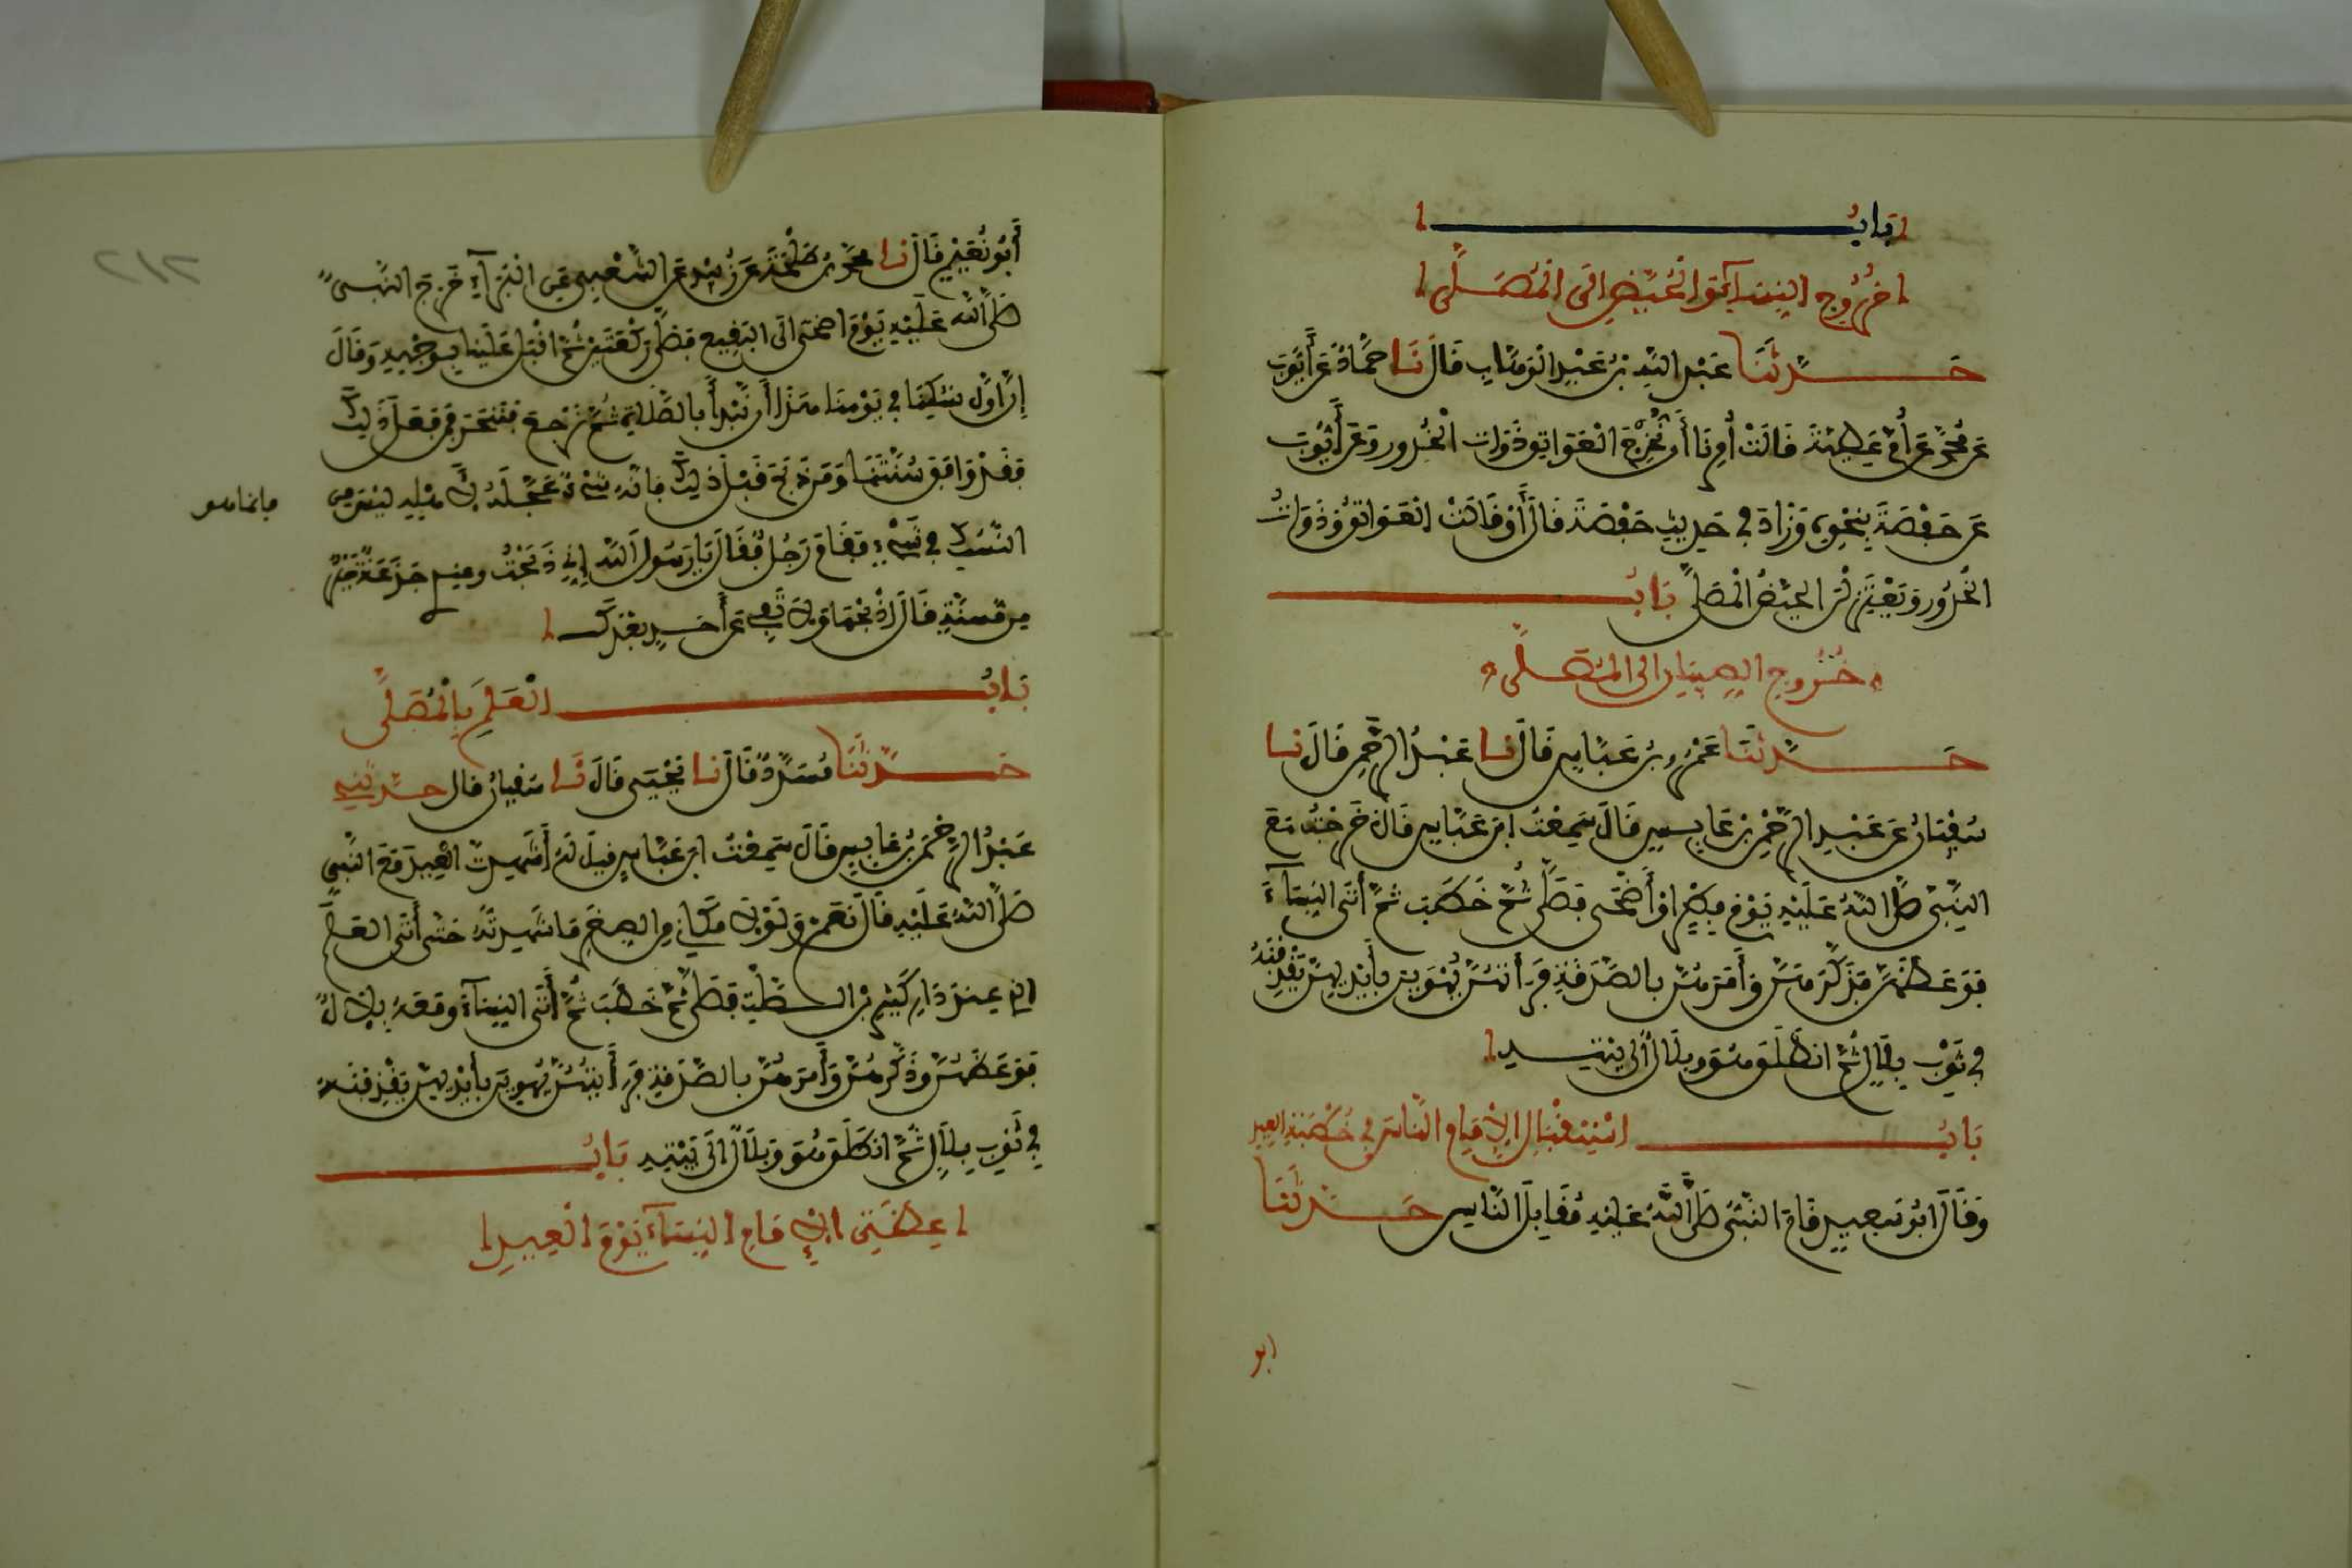 بَابُ
خُرُوجِ النِّسَاءِ الْحُيَّضِ الَى الْمُصَلَّى
حَدَّثَنَا عَبْدُ اللَّهِ بْنُ عَبْدِ الْوَهَّابِ قَالَ نَا حَمَّادٌ عَنْ أَيُّوبَ
عَنْ مُحَمَّدٍ عَنْ أُمِّ عَطِيَّةَ قَالَتْ أُمِرْنَا أَنْ نُخْرِجَ الْعَوَاتِقَ ذَوَاتِ الْخُدُورِ وَعَنْ أَيُّوبَ
عَنْ حَفْصَةَ بِنَحْوِهِ وَزَادَ فِي حَدِيثِ حَفْصَةَ قَالَ أَوْ قَالَتْ الْعَوَاتِقُ وَذَوَاتُ
الْخُدُورِ وَيَعْتَزِلْنَ الْحُيَّضُ الْمُصَلَّى بَابُ
خُرُوجِ الصِّبْيَانِ الى الْمُصَلَّى
حَدَّثَنَا عَمْرُو بْنُ عَبَّاسٍ قَالَ نا عَبْدُ الرَّحْمٰنِ قَالَ نا
سُفْيَانُ عَنْ عَبْدِ الرَّحْمٰنِ بْنِ عَابِسٍ قَالَ سَمِعْتُ ابْنَ عَبَّاسٍ قَالَ خَرَجْتُ مَعَ
النَّبِيِّ صَلَّى اللَّهُ عَلَيْهِ يَوْمَ فِطْرٍ اوْ أَضْحَى فَصَلَّى ثُمَّ خَطَبَ ثُمَّ أَتَى النِّسَاءَ
فَوَعَظَهُنَّ وَذَكَّرَهُنَّ وَأَمَرَهُنَّ بِالصَّدَقَةِ فَرَأَيْتُهُنَّ يُهْوِينَ بِأَيْدِيهِنَّ يَقْذِفْنَهُ
فِي ثَوْبِ بِلَالٍ ثُمَّ انْطَلَقَ هُوَ وبِلَالٌ الَى بَيْتِهِ
بَابُ اسْتِقْبَالِ الْإِمَامِ النَّاسَ فِي خُطْبَةِ الْعِيدِ
وَقَالَ ابُو سَعِيدٍ قَامَ النَّبِيُّ صَلَّى اللَّهُ عَلَيْهِ مُقَابِلَ النَّاسِ حَدَّثَنَا
ابو
٢١٢
أَبُو نُعَيْمٍ قَالَ نا مُحَمَّدُ بْنُ طَلْحَةَ عَنْ زُبَيْدٍ عَنِ الشَّعْبِيِّ عَنِ الْبَرَاءِ خَرَجَ النَّبِيُّ
صَلَّى اللَّهُ عَلَيْهِ يَوْمَ اضْحَى الَى الْبَقِيعِ فَصَلَّى رَكْعَتَيْنِ ثُمَّ اقْبَلَ عَلَيْنَا بِوَجْهِهِ وَقَالَ
إِنَّ اوَّلَ نُسُكِنَا فِي يَوْمِنَا هَذَا أَنْ نَبْدَأَ بِالصَّلَاةِ ثُمَّ نَرْجِعَ فَنَنْحَرَ فَمَنْ فَعَلَ ذَلِكَ
فَقَدْ وَافَقَ سُنَّتَنَا وَمَنْ ذَبَحَ قَبْلَ ذَلِكَ فَانَّهُ شَيْءٌ عَجَّلَهُ لِأَهْلِهِ لَيْسَ مِنَ
فانما هو
النُّسُكِ فِي شَيْءٍ فَقَامَ رَجُلٌ فَقَالَ يَا رَسُولَ اللَّهِ إِنِّي ذَبَحْتُ وعِنْدِي جَذَعَةٌ خَيْرٌ
مِنْ مُسِنَّةٍ قَالَ اذْبَحْهَا وَلَا تَفِي عَنْ أَحَدٍ بَعْدَكَ
بَابُ الْعَلَمِ بِالْمُصَلَّى
حَدَّثَنَا مُسَدَّدٌ قَالَ نا يَحْيَى قَالَ نَا سُفْيَانُ قال حدثني
عَبْدُ الرَّحْمٰنِ بْنُ عَابِسٍ قَالَ سَمِعْتُ ابْنَ عَبَّاسٍ قِيلَ لَهُ أَشَهِدْتَ الْعِيدَ مَعَ النَّبِيِّ
صَلَّى اللَّهُ عَلَيْهِ قَالَ نَعَمْ وَلَوْلَا مَكَانِي مِنَ الصِّغَرِ مَا شَهِدْتُهُ حَتَّى أَتَى الْعَلَمَ
الَّذِي عِنْدَ دَارِ كَثِيرِ بْنِ الصَّلْتِ فَصَلَّى ثُمَّ خَطَبَ ثُمَّ أَتَى النِّسَاءَ وَمَعَهُ بِلَالٌ
فَوَعَظَهُنَّ وَذَكَّرَهُنَّ وَأَمَرَهُنَّ بِالصَّدَقَةِ فَرَأَيْتُهُنَّ يُهْوِينَ بِأَيْدِيهِنَّ يَقْذِفْنَهُ
فِي ثَوْبِ بِلَالٍ ثُمَّ انْطَلَقَ هُوَ وَبِلَالٌ الَى بَيْتِهِ بَابُ
عِظَةِ الْإِمَامِ النِّسَاءَ يَوْمَ الْعِيدِ